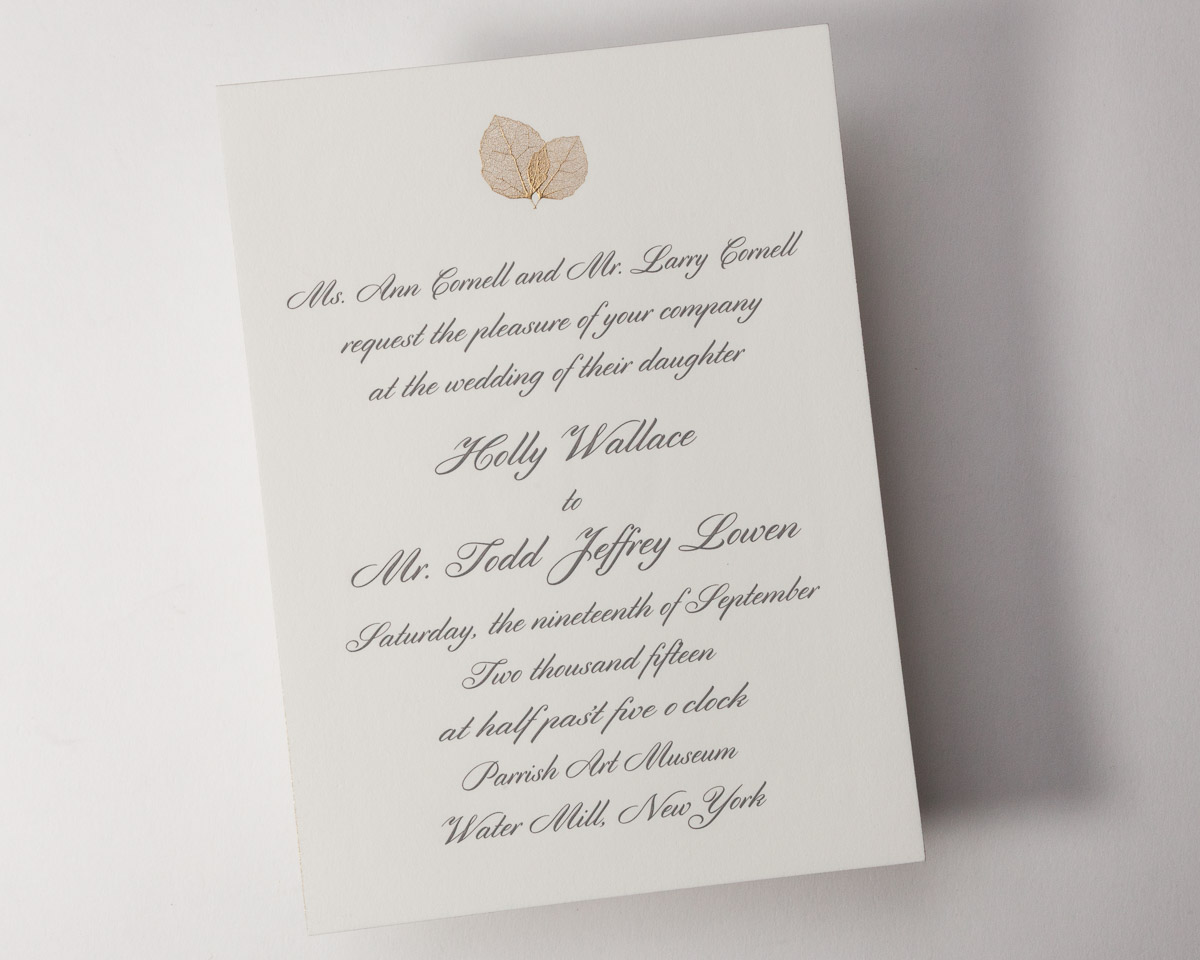 Ms. Ann Cornell and Mr. Larry Cornell
request the pleasure of your company
at the wedding of their daughter
Holly Wallace
to
Mr. Todd Jeffrey Lowen
Saturday, the nineteenth of September
Two thousand fifteen
at half past five o clock
Parrish Art Museum
Water Mill, New York